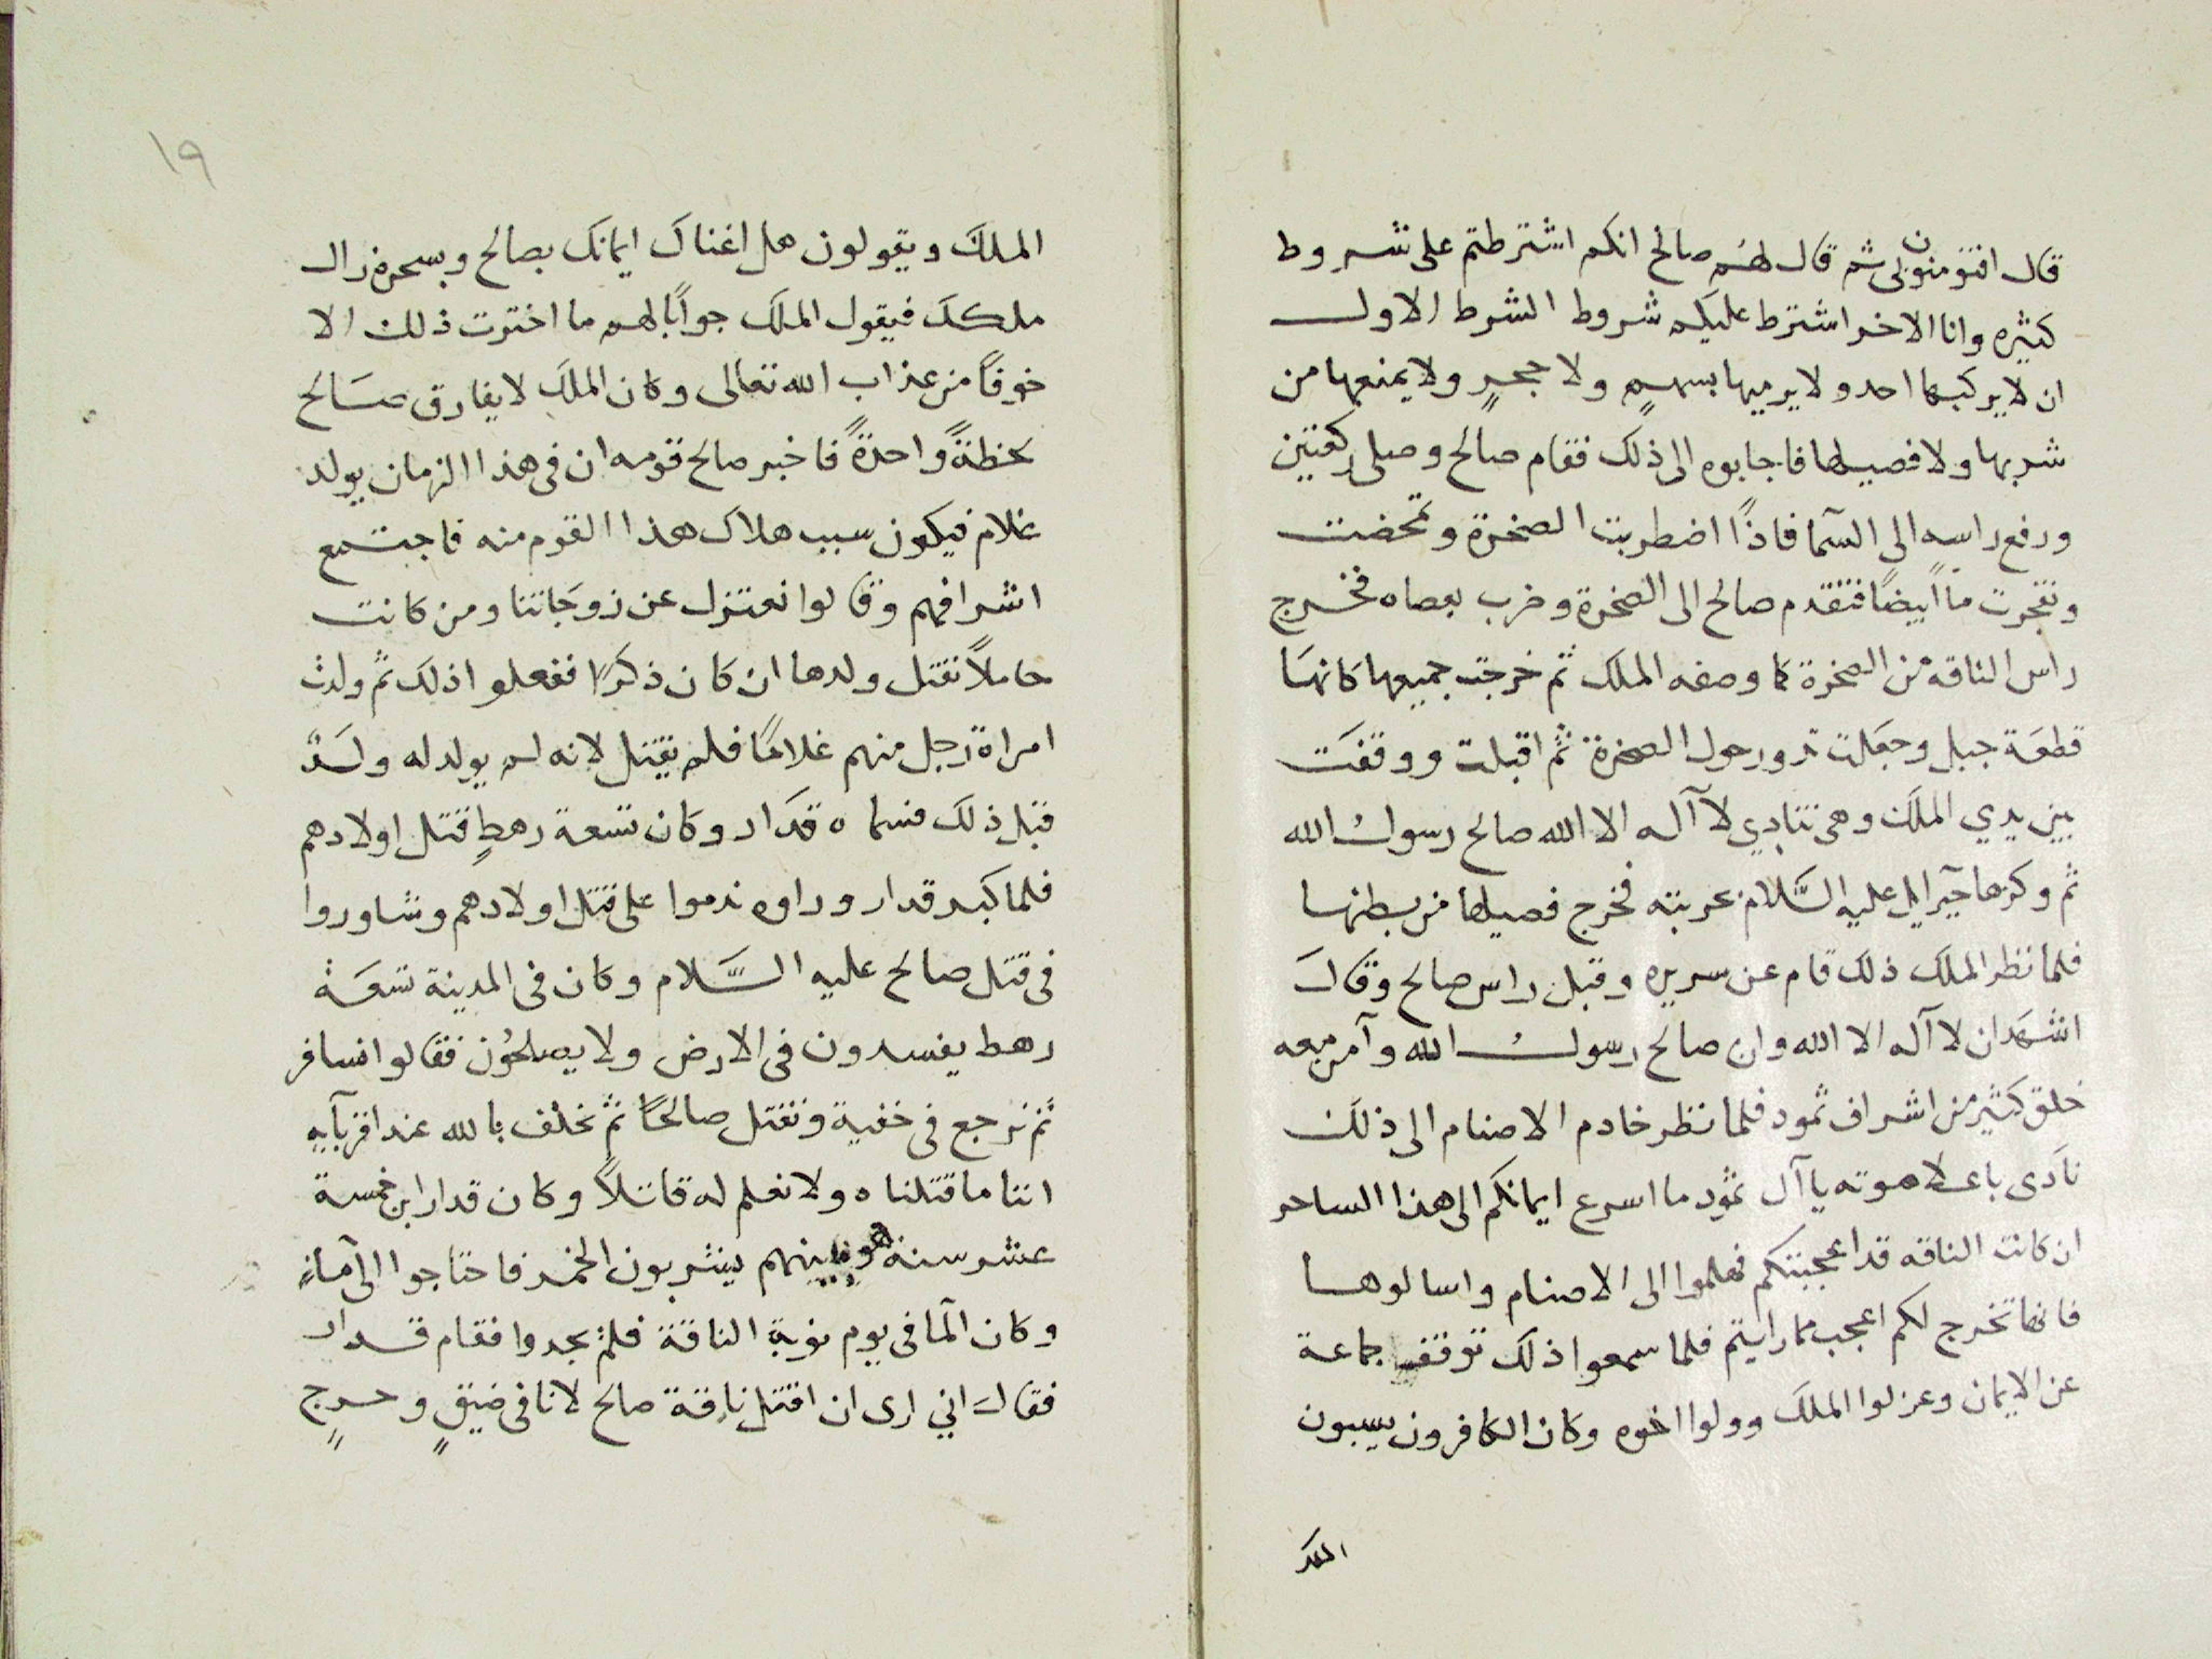 قال افتومنون بى ثم قال لهم صالح انكم اشترطتم على شروط
كثيره وانا الاخر اشترط عليكم شروط الشرط الاول
ان لا يركبها احد ولا يرميها بسهمٍ ولا حجرٍ ولا يمنعها من
شربها ولا فصيلها فاجابوه الى ذلك فقام صالح وصلى ركعتين
ورفع راسه الى السمآ فاذًا اضطربت الصخرة وتمخضت
وتفجرت ماً ايضًا فتقدم صالح الى الصخرة وضرب بعصاه فخرج
راس الناقه من الصخرة كما وصفه الملك ثم خرجت جميعها كانها
قطعة جبل وجعلت تدور حول الصخرة ثم اقبلت ووقفت
بين يدي الملك وهى تنادي لا آله الا الله صالح رسول الله
ثم وكزها جبرايل عليه السَّلام بحربته فخرج فصيلها من بطنها
فلما نظر الملك ذلك قام عن سريره وقبل راس صالح وقال
اشهد ان لا آله الا الله وان صالح رسول الله وآمن معه
خلق كثير من اشراف ثمود فلما نظر خادم الاصنام الى ذلك
نادى باعلا صوته يا آل ثمود ما اسرع ايمانكم الى هذا الساحر
ان كانت الناقه قد اعجبتكم فهلموا الى الاصنام واسالوها
فانها تخرج لكم اعجب مما رايتم فلما سمعوا ذلك توقف جماعة
عن الايمان وعزلوا الملك وولوا اخوه وكان الكافرون يسبون
الملك
١٩
الملك ويقولون هل اغناك ايمانك بصالح وبسحره زال
ملكك فيقول الملك جوابًا لهم ما اخترت ذلك الا
خوفًا من عذاب الله تعالى وكان الملك لا يفارق صالح
لحظةً واحدةً فاخبر صالح قومه ان فى هذا الزمان يولد
غلام فيكون سبب هلاك هذا القوم منه فاجتمع
اشرافهم وقالوا نعتزل عن زوجاتنا ومن كانت
حاملاً نقتل ولدها ان كان ذكرًا ففعلوا ذلك ثم ولدت
امراة رجل منهم غلامًا فلم يقتل لانه لم يولد له ولدٌ
قبل ذلك فسماه قدار وكان تسعة رهطٍ قتل اولادهم
فلما كبر قدار وراوه ندموا على قتل اولادهم وشاوروا
فى قتل صالح عليه السَّلام وكان فى المدينة تسعة
رهط يفسدون فى الارض ولا يصلحُون فقالوا نسافر
ثم نرجع فى خفية ونقتل صالحًا ثم نحلف بالله عند اقربآيه
اننا ما قتلناه ولا نعلم له قاتلاً وكان قدار ابن خمسة
عشر سنة هو بينهم يشربون الخمر فاحتاجوا الى مآءٍ
وكان المآ فى يوم نوبة الناقة فلم يجدوا فقام قدار
فقال اني ارى ان اقتل ناقة صالح لانا فى ضيقٍ وحرجٍ